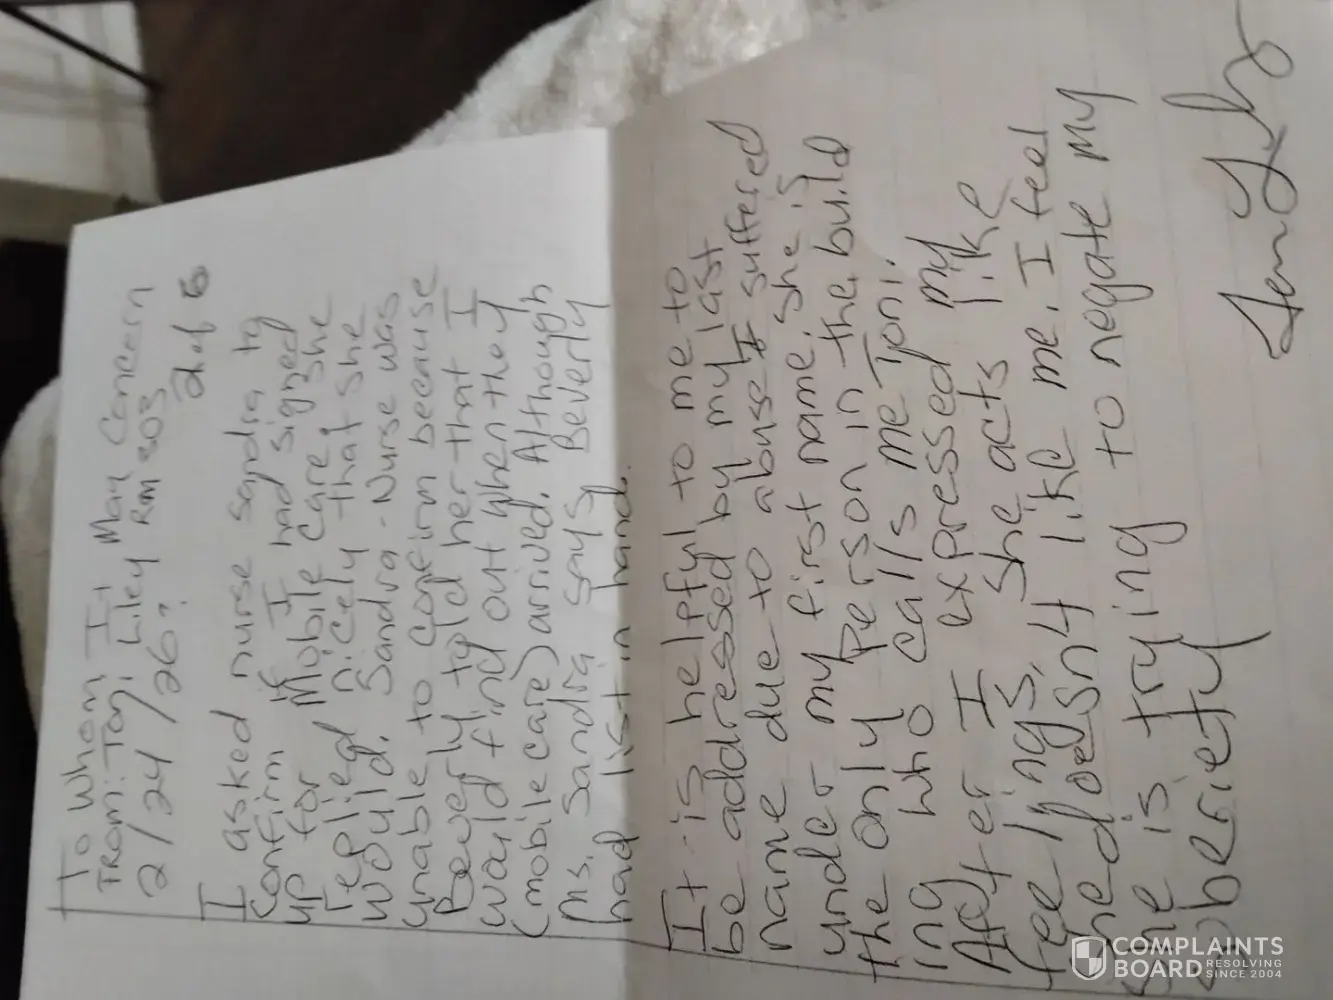 To Whom It May Concern
From: Toni Liley Rm 803
2/24/26? 2 of 5
I asked nurse Sandra to
confirm if I had signed
up for Mobile Care, she
replied nicely that she
would. Sandra - Nurse was
unable to confirm because
Beverly told her that I
would find out when they
(mobile care) arrived. Although
Ms. Sandra says Beverly
had list in hand.
It is helpful to me to
be addressed by my last
name due to abuse I suffered
under my first name. She is
the only person in the build
ing who calls me Toni.
After I expressed my
feelings, she acts like
she doesn4 like me. I feel
she is trying to negate my
sobriety
COMPLAINTS
BOARD RESOLVING
SINCE 2004